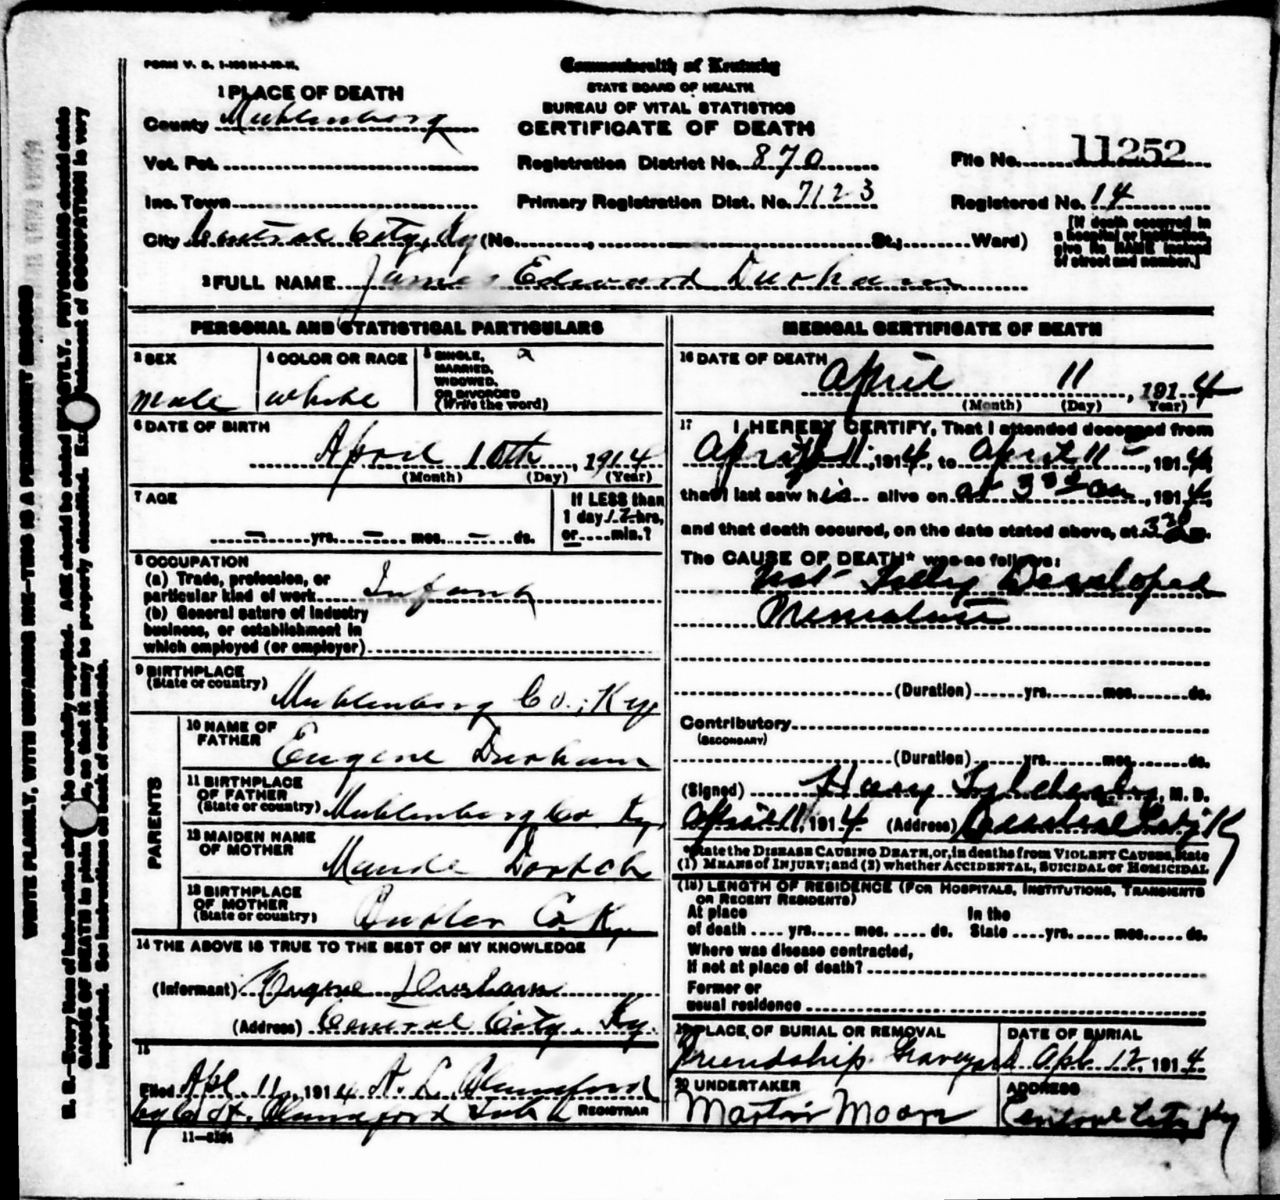 FORM V. S. 1-
Commonwealth of Kentucky
STATE BOARD OF HEALTH
BUREAU OF VITAL STATISTICS
CERTIFICATE OF DEATH
1 PLACE OF DEATH
County Muhlenberg
Vot. Pct.
Inc. Town
City Central City, Ky (No. St.; Ward)
Registration District No. 870
Primary Registration Dist. No. 7123
File No. 11252
Registered No. 14
[If death occurred in
a hospital or institution,
give its NAME instead
of street and number.]
2 FULL NAME James Edward Durham
PERSONAL AND STATISTICAL PARTICULARS
3 SEX
male
4 COLOR OR RACE
white
5 SINGLE,
MARRIED,
WIDOWED,
OR DIVORCED
(Write the word)
6 DATE OF BIRTH
April 10th, 1914
(Month) (Day) (Year)
7 AGE
- yrs. - mos. - ds.
If LESS than
1 day 12 hrs,
or min.?
8 OCCUPATION
(a) Trade, profession, or
particular kind of work Infant
(b) General nature of industry
business, or establishment in
which employed (or employer)
9 BIRTHPLACE
(State or country)
Muhlenberg Co., Ky
PARENTS
10 NAME OF
FATHER
Eugene Durham
11 BIRTHPLACE
OF FATHER
(State or country) Muhlenberg Co Ky
12 MAIDEN NAME
OF MOTHER
Maude Dortch
13 BIRTHPLACE
OF MOTHER
(State or country) Butler Co Ky
14 THE ABOVE IS TRUE TO THE BEST OF MY KNOWLEDGE
(Informant) Eugene Durham
(Address) Central City, Ky.
15
Filed Apl. 11, 1914
REGISTRAR
11-
MEDICAL CERTIFICATE OF DEATH
16 DATE OF DEATH
April 11, 1914
(Month) (Day) Year)
17 I HEREBY CERTIFY, That I attended deceased from
April 11, 1914, to April 11, 1914,
that I last saw h is alive on at 3 , 1914,
and that death occured, on the date stated above, at 3 m.
The CAUSE OF DEATH* was as follows:
Not Fully Developed
(Duration) yrs. mos. ds.
Contributory
(SECONDARY)
(Duration) yrs. mos. ds.
(Signed) Harry , M. D.
April 11, 1914 (Address) Central City Ky
State the DISEASE CAUSING DEATH, or, in deaths from VIOLENT CAUSES, state
(1) MEANS OF INJURY; and (2) whether ACCIDENTAL, SUICIDAL or HOMICIDAL
(18) LENGTH OF RESIDENCE (FOR HOSPITALS, INSTITUTIONS, TRANSIENTS
OR RECENT RESIDENTS)
At place In the
of death yrs. mos. ds. State yrs. mos. ds.
Where was disease contracted,
If not at place of death?
Former or
usual residence
19 PLACE OF BURIAL OR REMOVAL
Friendship Graveyard
DATE OF BURIAL
Apl. 12, 1914
20 UNDERTAKER
Martin Moore
ADDRESS
Central City Ky
WRITE PLAINLY, WITH UNFADING INK—THIS IS A PERMANENT RECORD
N. B.—Every item of information should be carefully supplied. AGE should be stated EXACTLY. PHYSICIANS should state
CAUSE OF DEATH in plain terms, so that it may be properly classified. Exact statement of OCCUPATION is very
important. See instructions on back of certificate.